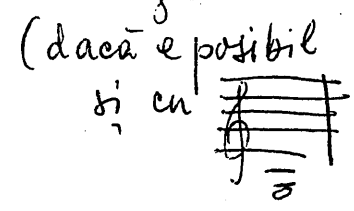 (dacă e posibil
și cu